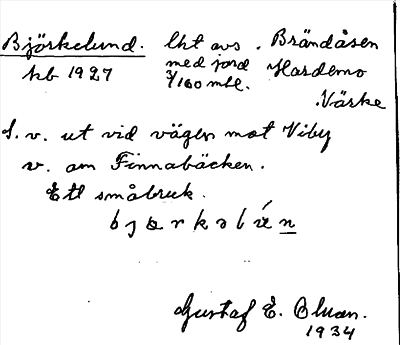 Björkelund. lht avs. Brändåsen
kb 1927 med jord Hardemo
3/160 mtl. Närke
S. v. ut vid vägen mot Viby
v. om Finnabäcken.
Ett småbruk.
Gustaf E. Bluan.
1934